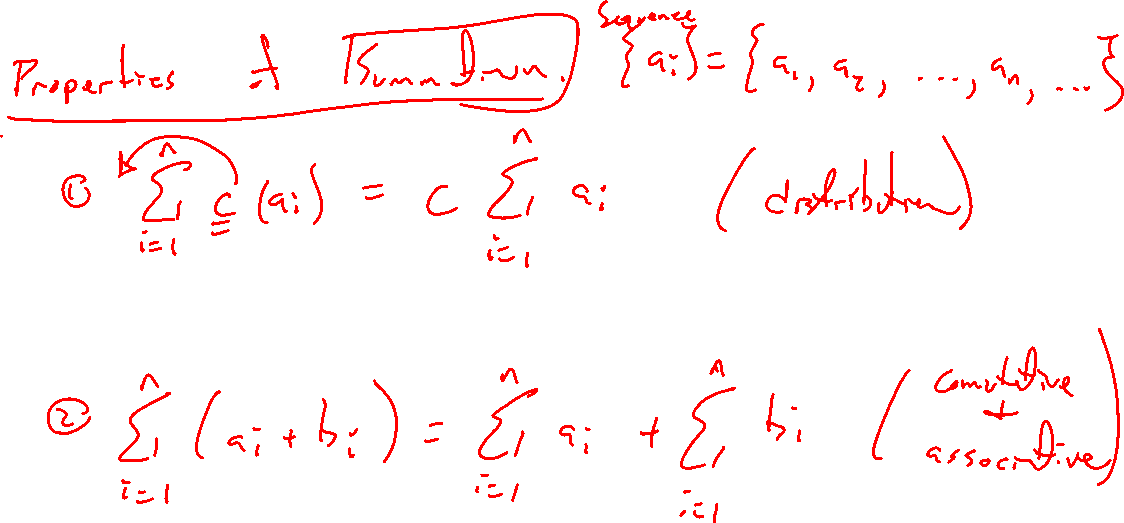 Properties of Summation. Sequence {aᵢ} = {a₁, a₂, ..., aₙ, ...}
① ∑ᵢ₌₁ⁿ c (aᵢ) = c ∑ᵢ₌₁ⁿ aᵢ (distribution)
② ∑ᵢ₌₁ⁿ (aᵢ + bᵢ) = ∑ᵢ₌₁ⁿ aᵢ + ∑ᵢ₌₁ⁿ bᵢ (comutative + associative)